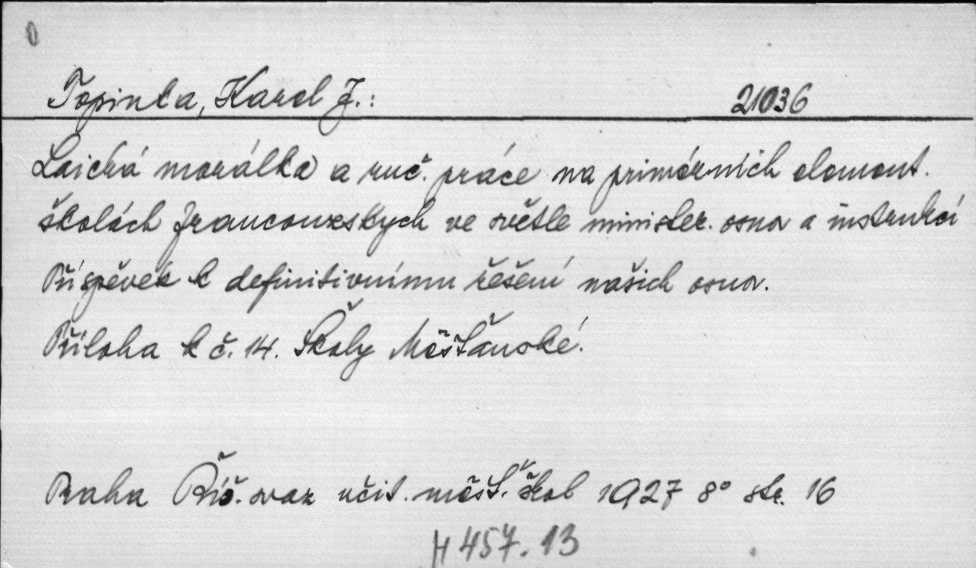 0
Topinka, Karel J.: 21036
Laická morálka a ruč. práce na primárních element.
školách francouzských ve světle minister. osnov a instrukcí
Příspěvek k definitivnímu řešení našich osnov.
Příloha k č. 14. Školy Měšťanské.
Praha Říš. svaz učit. měšť. škol 1927 8° str. 16
H 457.13